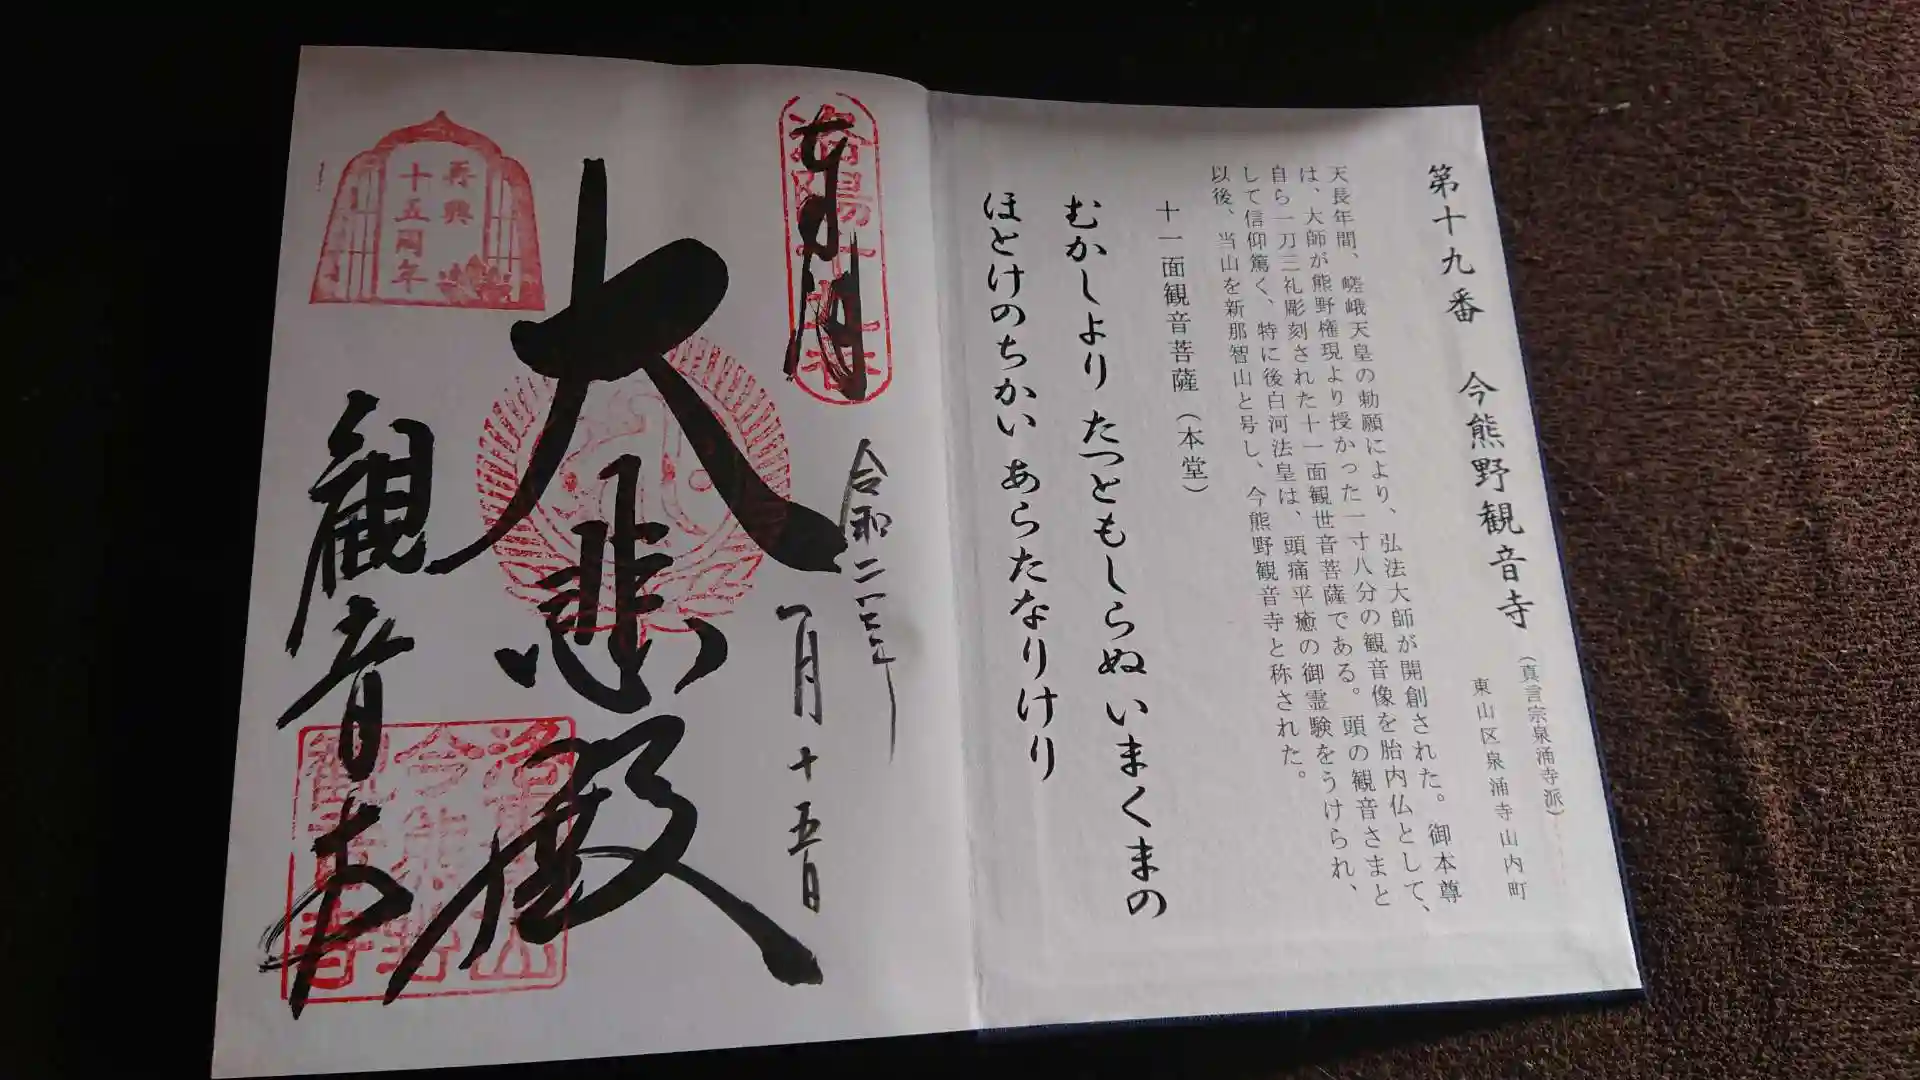 第十九番 今熊野観音寺
(真言宗泉涌寺派)
東山区泉涌寺山内町
天長年間、嵯峨天皇の勅願により、弘法大師が開創された。御本尊
は、大師が熊野権現より授かった一寸八分の観音像を胎内仏として、
自ら一刀三礼彫刻された十一面観世音菩薩である。頭の観音さまと
して信仰篤く、特に後白河法皇は、頭痛平癒の御霊験をうけられ、
以後、当山を新那智山と号し、今熊野観音寺と称された。
十一面観音菩薩(本堂)
むかしより たつともしらぬ いまくまの
ほとけのちかい あらたなりけり
洛陽十九番
令和二年
一月十五日
大悲殿
観音寺
再興
十五周年
今熊野
観音寺